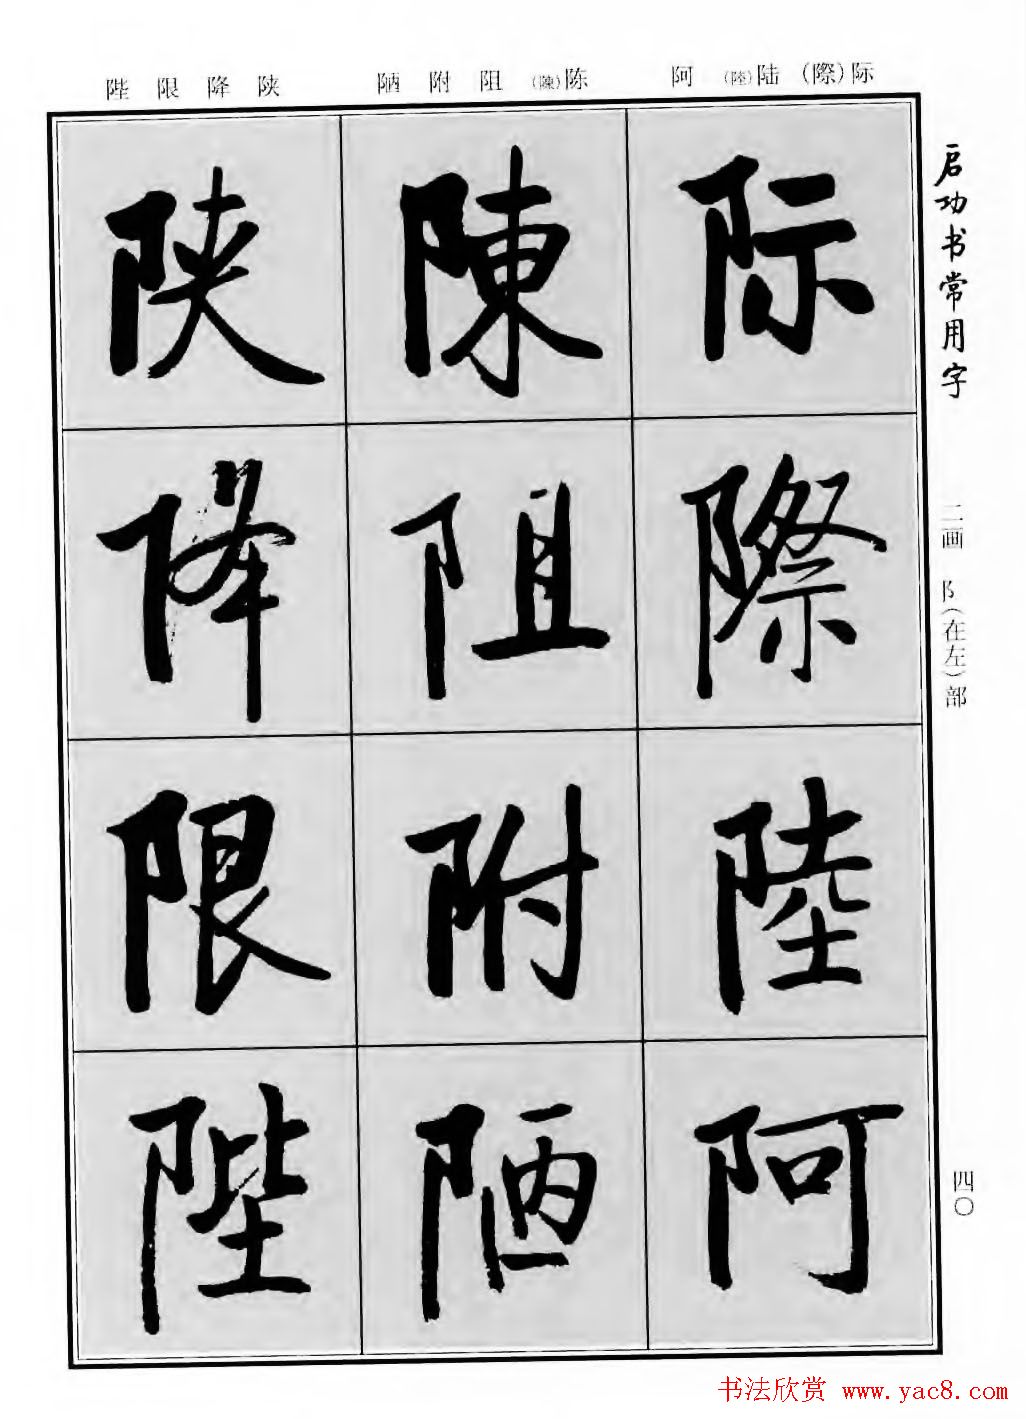 际(際)陆(陸)阿
陈(陳)阻附陋
陕降限陛
启功书常用字
二画 阝(在左)部
四〇
际
際
陸
阿
陳
阻
附
陋
陕
降
限
陛
书法欣赏 www.yac8.com